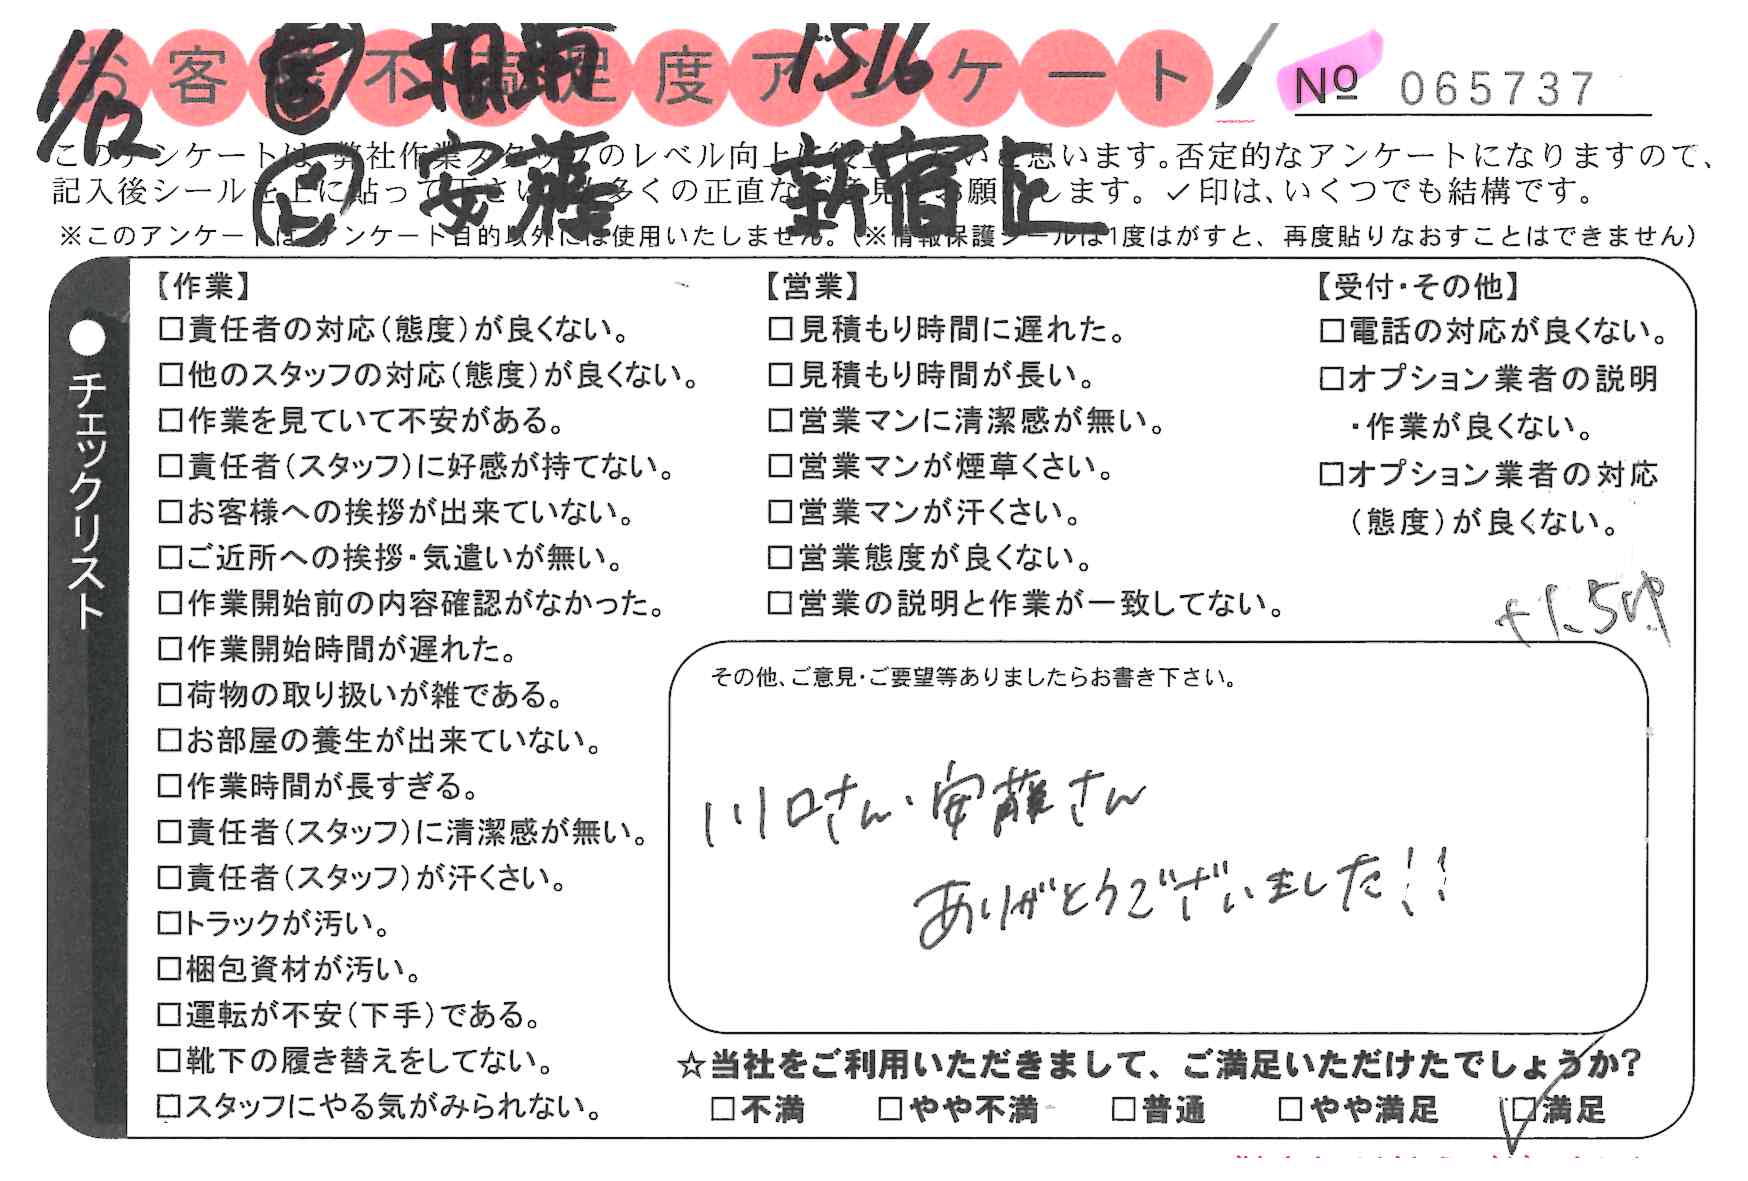 お客様不満足度アンケート
1/12 相馬 1516
安藤 新宿
No 065737
このアンケートは、弊社作業スタッフのレベル向上に役立てたいと思います。否定的なアンケートになりますので、
記入後シールを上に貼って下さい。数多くの正直なご意見をお願いします。✓印は、いくつでも結構です。
※このアンケートは、アンケート目的以外には使用いたしません。(※情報保護シールは1度はがすと、再度貼りなおすことはできません)
●チェックリスト
【作業】
□責任者の対応(態度)が良くない。
□他のスタッフの対応(態度)が良くない。
□作業を見ていて不安がある。
□責任者(スタッフ)に好感が持てない。
□お客様への挨拶が出来ていない。
□ご近所への挨拶・気遣いが無い。
□作業開始前の内容確認がなかった。
□作業開始時間が遅れた。
□荷物の取り扱いが雑である。
□お部屋の養生が出来ていない。
□作業時間が長すぎる。
□責任者(スタッフ)に清潔感が無い。
□責任者(スタッフ)が汗くさい。
□トラックが汚い。
□梱包資材が汚い。
□運転が不安(下手)である。
□靴下の履き替えをしてない。
□スタッフにやる気がみられない。
【営業】
□見積もり時間に遅れた。
□見積もり時間が長い。
□営業マンに清潔感が無い。
□営業マンが煙草くさい。
□営業マンが汗くさい。
□営業態度が良くない。
□営業の説明と作業が一致してない。
【受付・その他】
□電話の対応が良くない。
□オプション業者の説明
・作業が良くない。
□オプション業者の対応
(態度)が良くない。
その他、ご意見・ご要望等ありましたらお書き下さい。
川口さん・安藤さん
ありがとうございました!!
☆当社をご利用いただきまして、ご満足いただけたでしょうか?
□不満 □やや不満 □普通 □やや満足 ☑満足